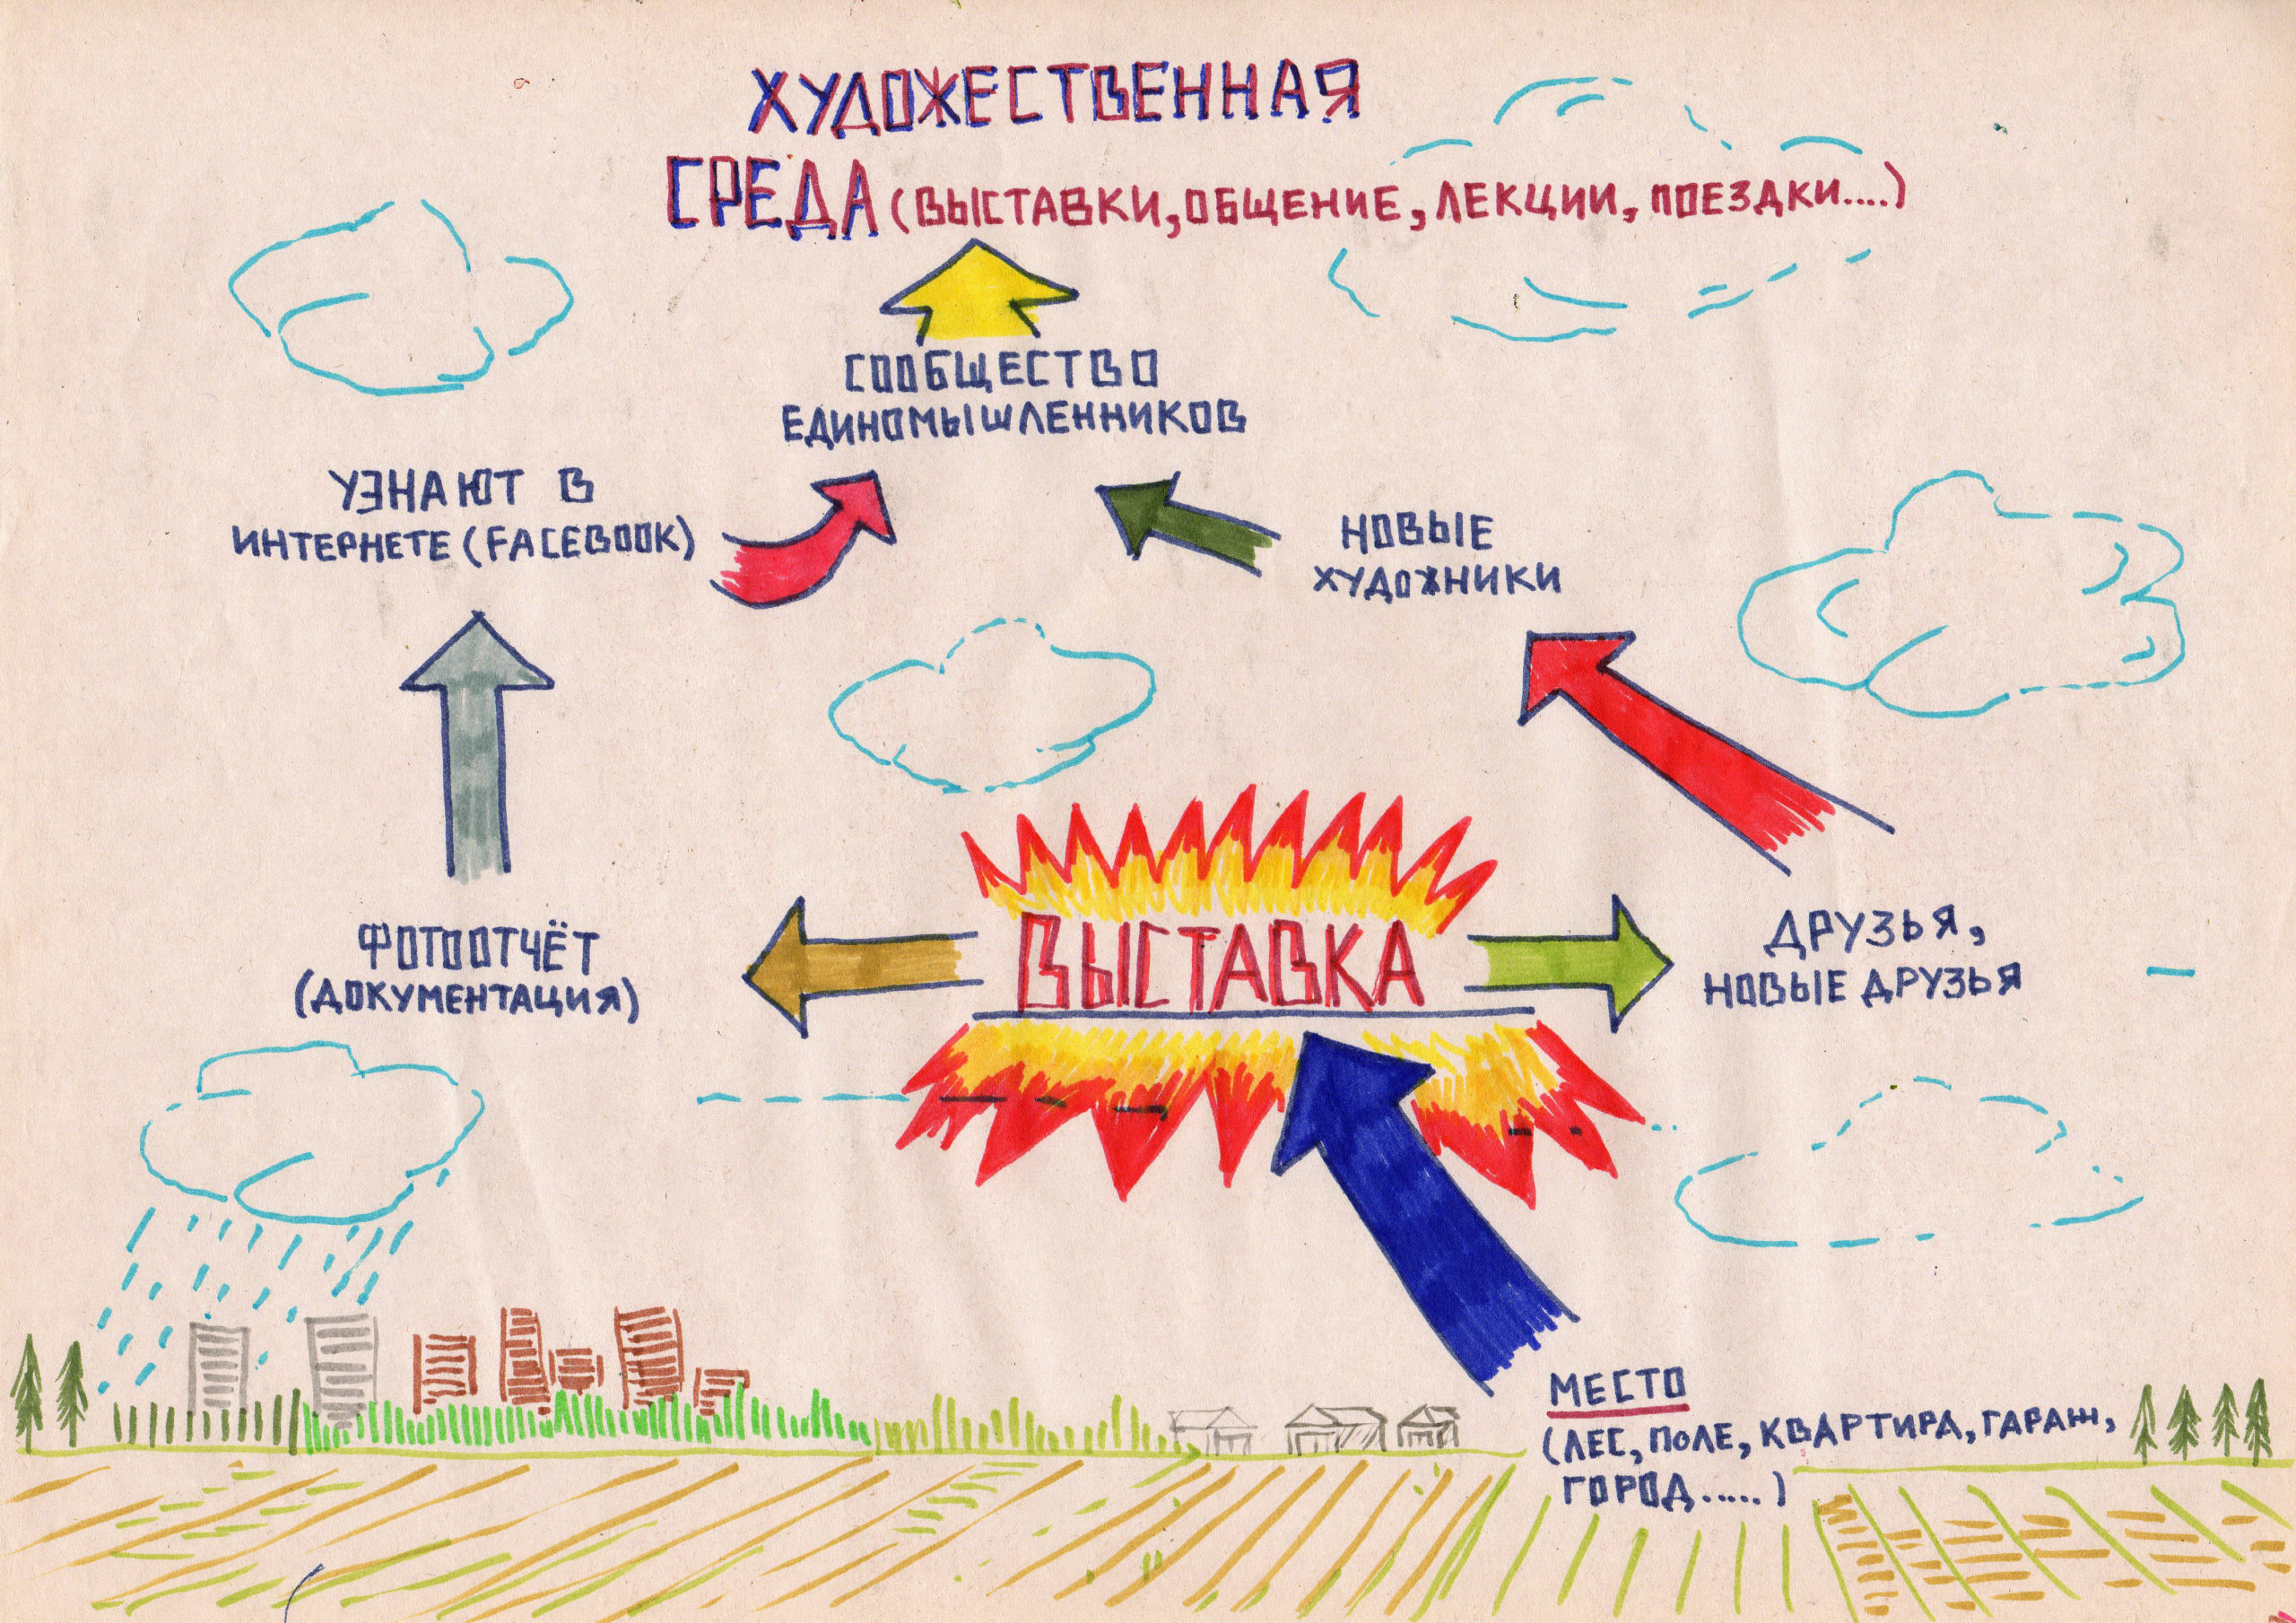 ХУДОЖЕСТВЕННАЯ
СРЕДА (ВЫСТАВКИ, ОБЩЕНИЕ, ЛЕКЦИИ, ПОЕЗДКИ....)
СООБЩЕСТВО
ЕДИНОМЫШЛЕННИКОВ
УЗНАЮТ В
ИНТЕРНЕТЕ (FACEBOOK)
НОВЫЕ
ХУДОЖНИКИ
ФОТООТЧЁТ
(ДОКУМЕНТАЦИЯ)
ВЫСТАВКА
ДРУЗЬЯ,
НОВЫЕ ДРУЗЬЯ
МЕСТО
(ЛЕС, ПОЛЕ, КВАРТИРА, ГАРАЖ,
ГОРОД.....)